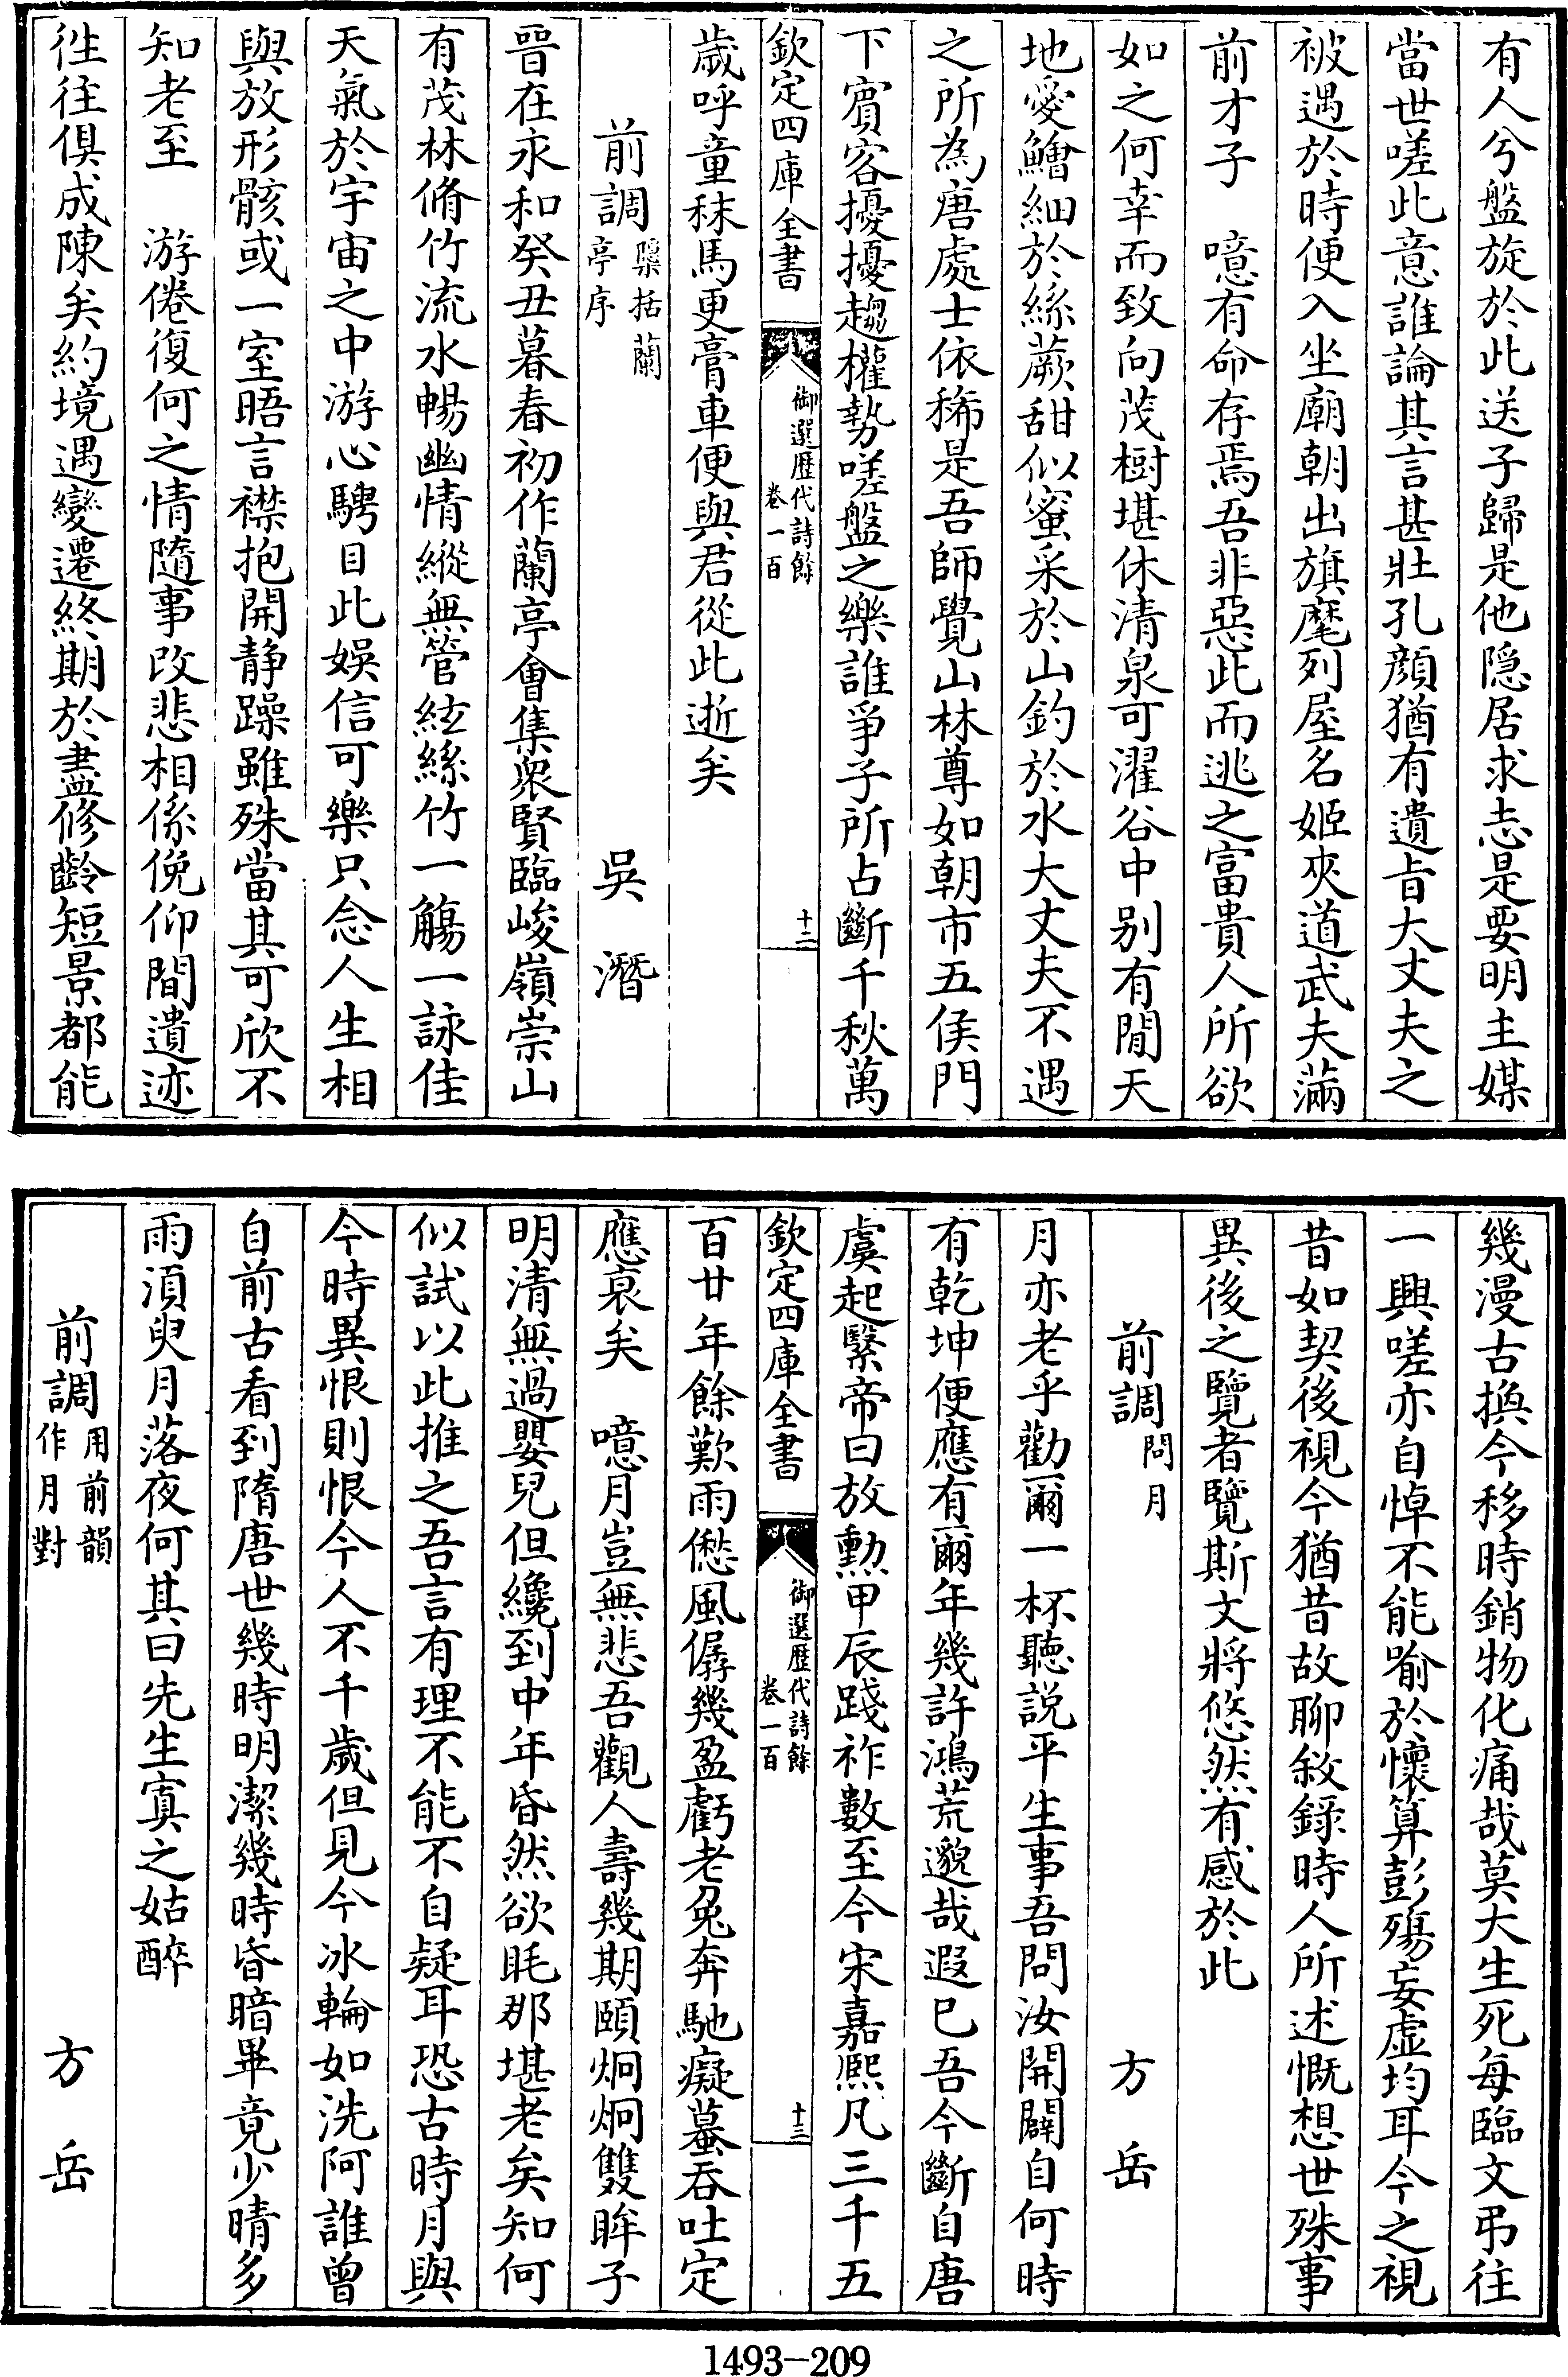 有人兮盤旋於此送子歸是他隐居求志是要明主媒
當世嗟此意誰論其言甚壯孔顔猶有遺旨大丈夫之
被遇於時便入坐廟朝出旗麾列屋名姬夾道武夫滿
前才子　噫有命存焉吾非惡此而逃之富貴人所欲
如之何幸而致向茂樹堪休清泉可濯谷中别有閒天
地愛鱠細於絲蕨甜似蜜采於山釣於水大丈夫不遇
之所為唐處士依稀是吾師覺山林尊如朝市五侯門
下賓客擾擾趨權勢嗟盤之樂誰爭子所占斷千秋萬
欽定四庫全書
御選歷代詩餘
卷一百
十二
歲呼童秣馬更膏車便與君從此逝矣
前調檃括蘭亭序
吳潛
晉在永和癸丑暮春初作蘭亭會集衆賢臨峻嶺崇山
有茂林脩竹流水暢幽情縱無管絃絲竹一觴一詠佳
天氣於宇宙之中游心騁目此娛信可樂只念人生相
與放形骸或一室晤言襟抱開静躁雖殊當其可欣不
知老至　游倦復何之情隨事改悲相係俛仰間遺迹
徃往俱成陳矣約境遇變遷終期於盡修齡短景都能
幾漫古換今移時銷物化痛哉莫大生死每臨文弔往
一興嗟亦自悼不能喻於懷算彭殤妄虚均耳今之視
昔如契後視今猶昔故聊敘錄時人所述慨想世殊事
異後之覽者覽斯文將悠然有感於此
前調問月
方岳
月亦老乎勸爾一杯聽説平生事吾問汝開闢自何時
有乾坤便應有爾年幾許鴻荒邈哉遐已吾今斷自唐
虞起繄帝曰放勲甲辰踐祚數至今宋嘉熙凡三千五
欽定四庫全書
御選歷代詩餘
卷一百
十三
百廿年餘歎雨僽風僝幾盈虧老兔奔馳癡蟇吞吐定
應衰矣　噫月豈無悲吾觀人壽幾期頤炯炯雙眸子
明清無過嬰兒但纔到中年昏然欲眊那堪老矣知何
似試以此推之吾言有理不能不自疑耳恐古時月與
今時異恨則恨今人不千歲但見今冰輪如洗阿誰曾
自前古看到隋唐世幾時明潔幾時昏暗畢竟少晴多
雨湏臾月落夜何其曰先生寘之姑醉
前調用前韻作月對
方岳
1493-209